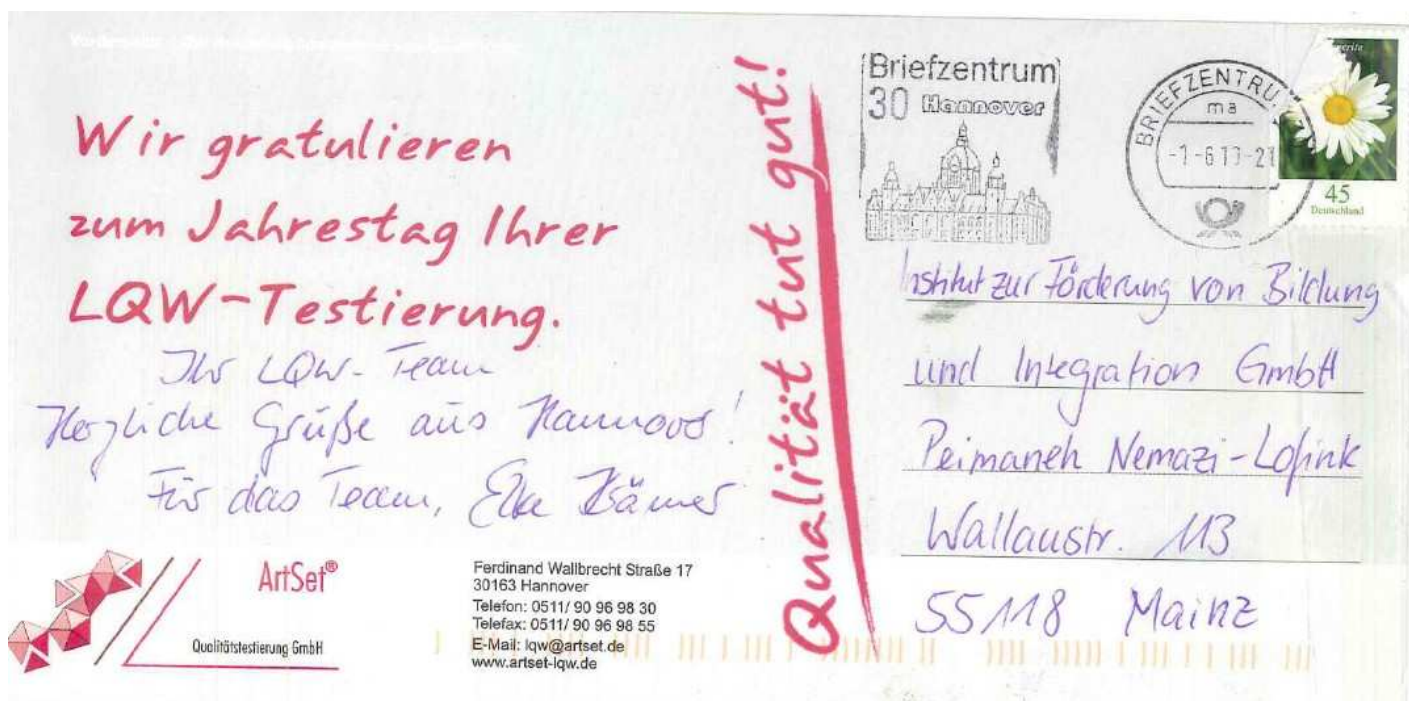 Wir gratulieren
zum Jahrestag Ihrer
LQW-Testierung.
Ihr LQW-Team
Herzliche Grüße aus Hannover!
Für das Team, Elke Krämer
ArtSet®
Qualitätstestierung GmbH
Ferdinand Wallbrecht Straße 17
30163 Hannover
Telefon: 0511/ 90 96 98 30
Telefax: 0511/ 90 96 98 55
E-Mail: lqw@artset.de
www.artset-lqw.de
Qualität tut gut!
Briefzentrum
30 Hannover
BRIEFZENTRU
ma
45
Deutschland
Institut zur Förderung von Bildung
und Integration GmbH
Peimaneh Nemazi-Lofink
Wallaustr. 113
55118 Mainz